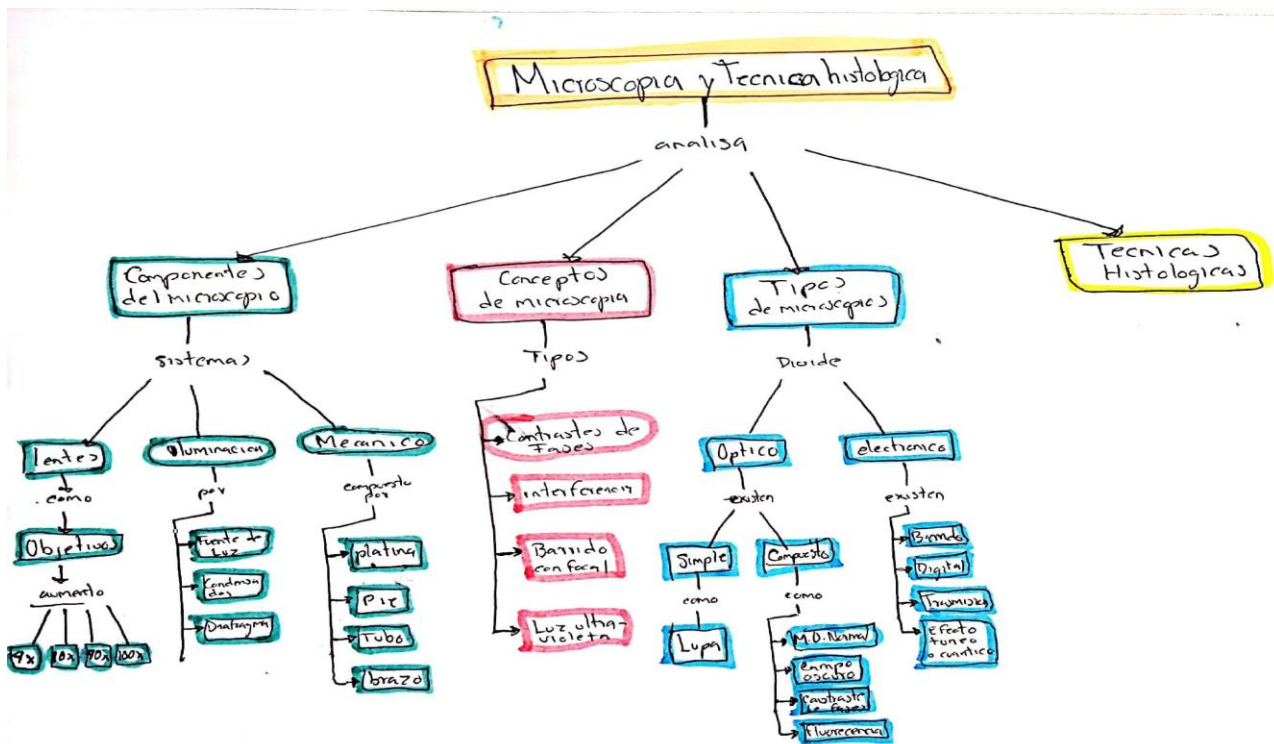 Microscopia y Tecnica histologica
analisa
Componentes
del microscopio
sistemas
lentes
como
Objetivos
aumento
4x
10x
40x
100x
iluminacion
por
Fuente de
Luz
Diafragma
Mecanico
compuesto
por
platina
Pie
Tubo
brazo
Conceptos
de microscopia
Tipos
Contrastes de
Fases
Barrido
confocal
Luz ultra-
violeta
Tipos
de microscopios
Divide
Optico
existen
Simple
como
Lupa
Compuesto
como
M.O. Normal
campo
oscuro
contraste
de fases
electronico
existen
Digital
Efecto
tuneo
o cuantico
Tecnicas
Histologicas